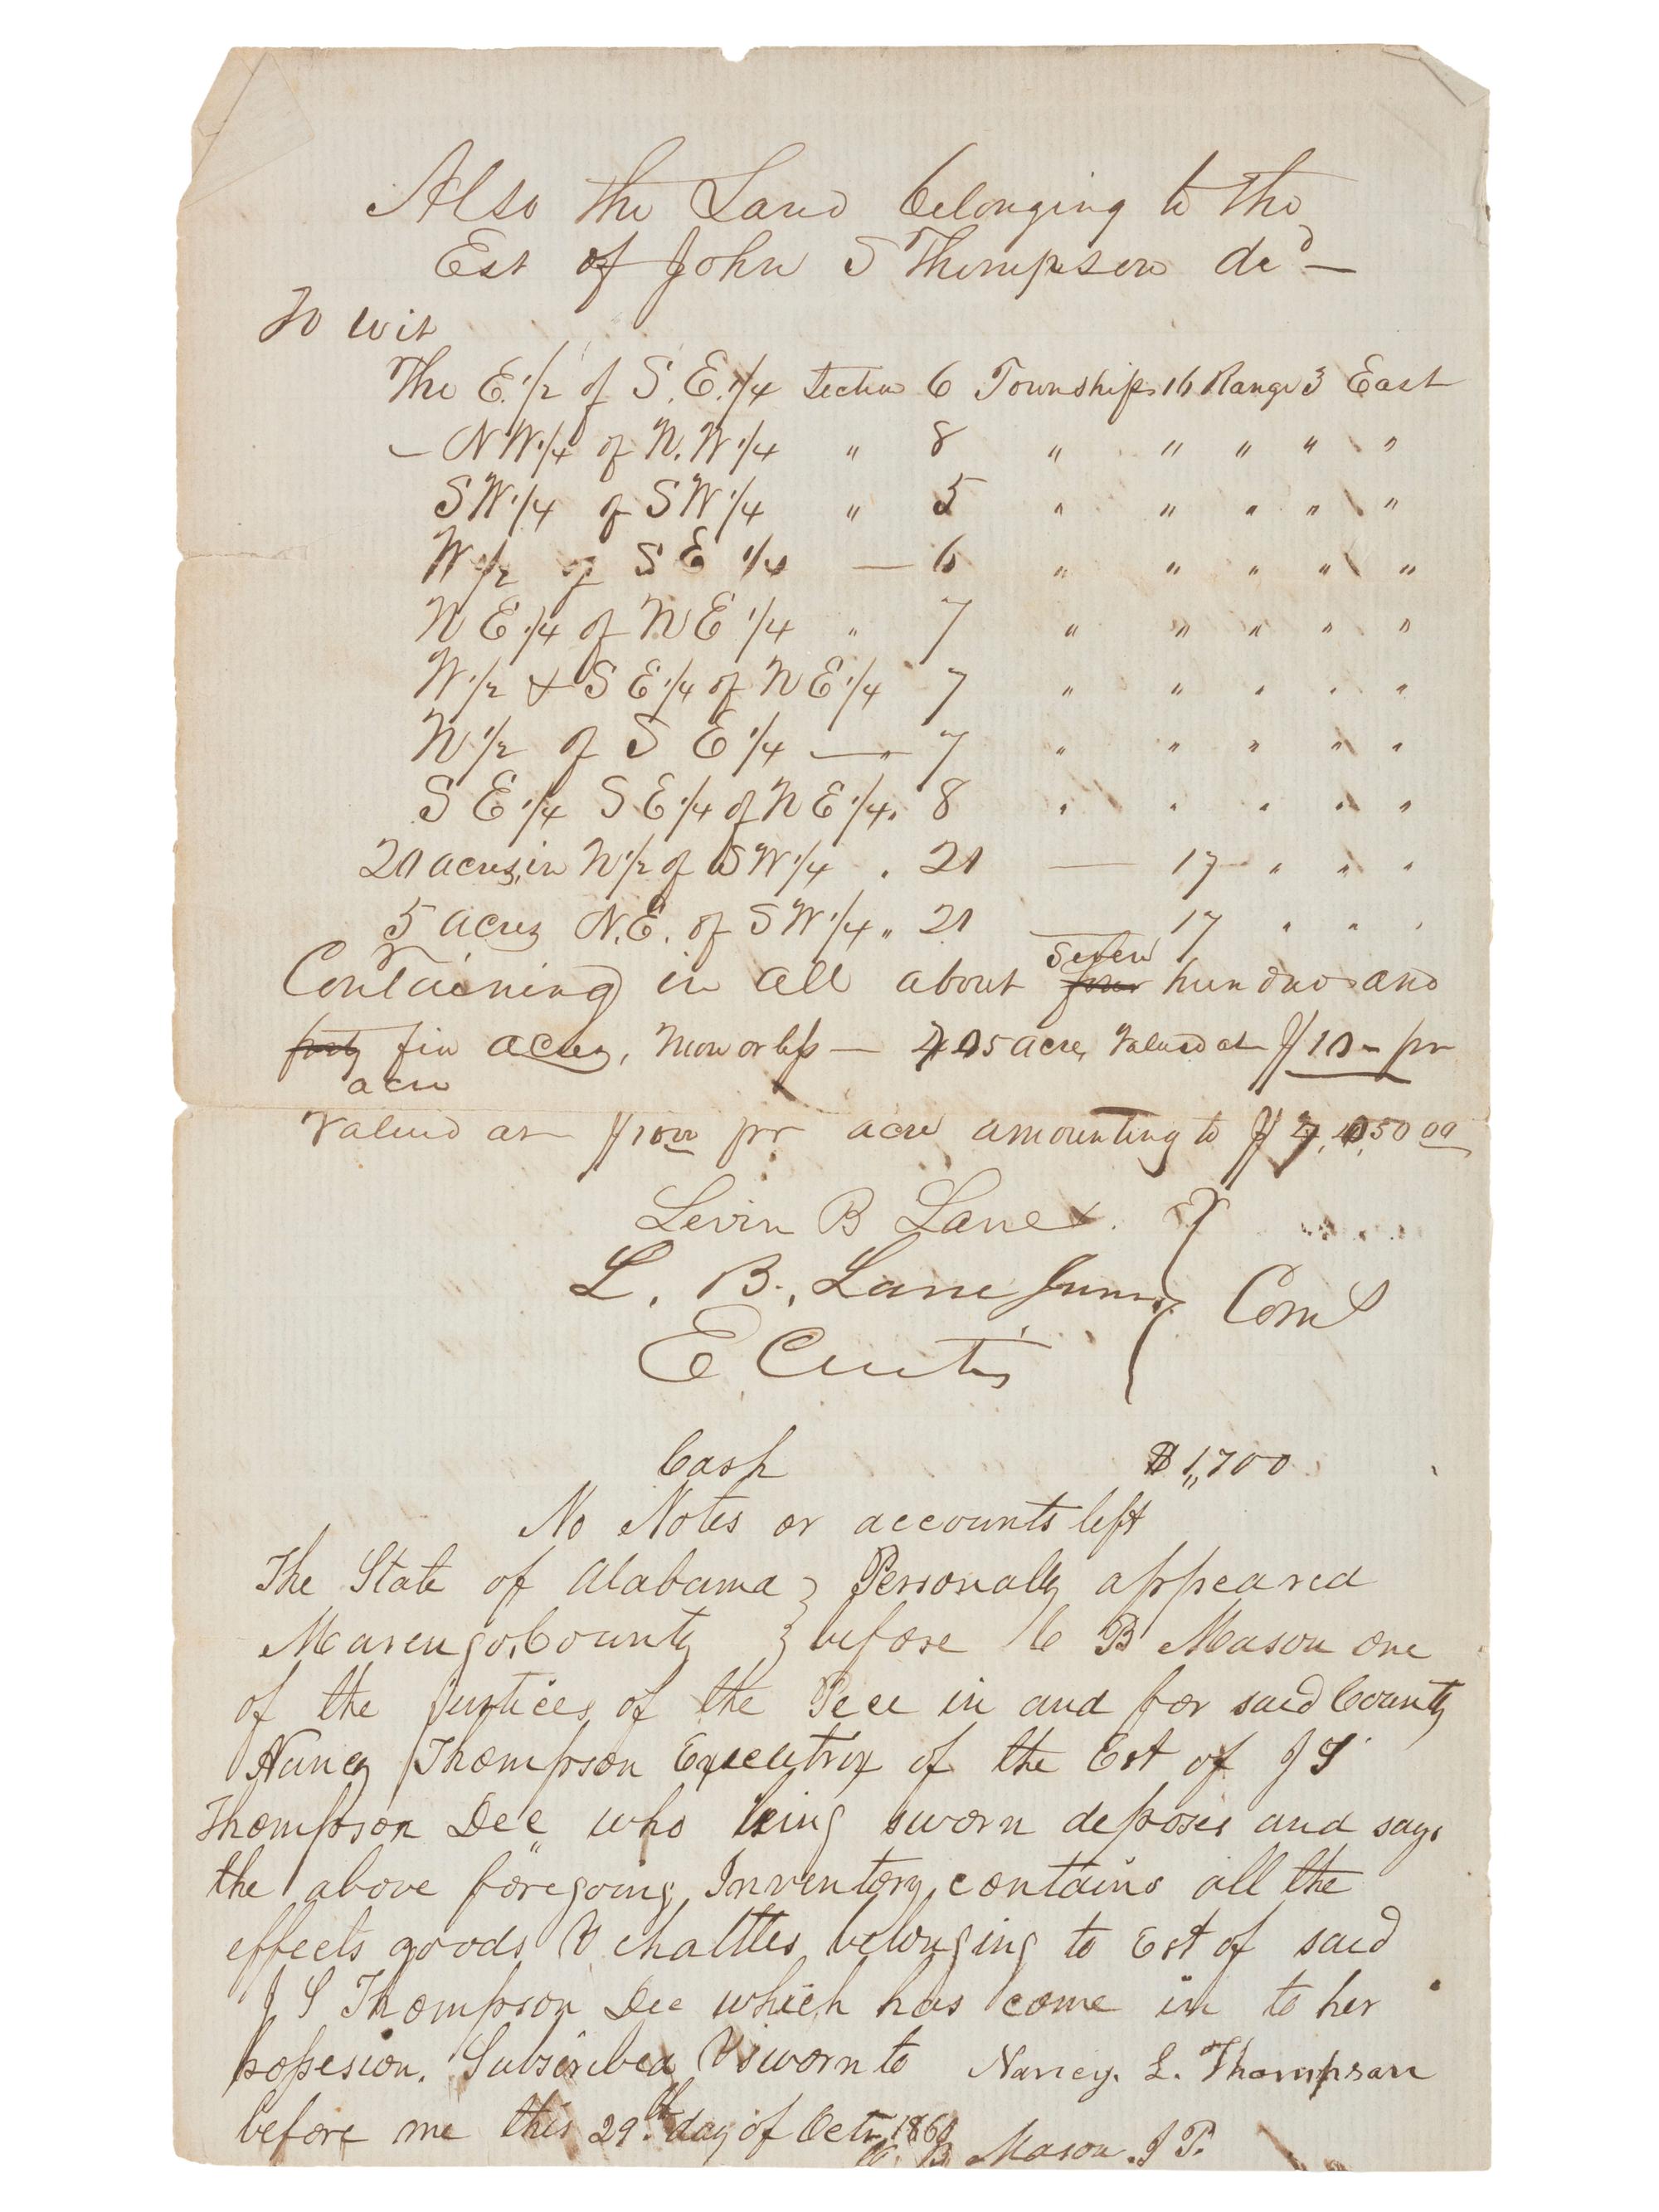 Also the Land belonging to the
Est of John S Thompson dcd —
To wit
The E. 1/2 of S. E. 1/4 Section 6 Township 16 Range 3 East
— NW 1/4 of N. W 1/4 " 8 " " " " "
SW 1/4 of SW 1/4 " 5 " " " " "
W 1/2 of S E 1/4 — 6 " " " " "
N E 1/4 of N E 1/4 " 7 " " " " "
W 1/2 & S E 1/4 of N E 1/4 7 " " " " "
N 1/2 of S E 1/4 — 7 " " " " "
S E 1/4 S E 1/4 of N E 1/4 " 8 " " " " "
20 acres in N 1/2 of SW 1/4 " 21 — 17 " " "
5 acres N. E. of S W 1/4 " 21 — 17 " " "
Containing in all about four seven hundred and
forty five acres, more or less — 705 acres valued at $10 — pr
acre
Valued at $10 00 pr acre amounting to $7,050 00
Levin B Lane
L. B. Lane Junr
E Curtis
Coms
Cash $1,700
No Notes or accounts left
The State of Alabama } Personally appeared
Marengo County } before C B Mason one
of the justices of the Pece in and for said County
Nancy Thompson Executrix of the Est of J S
Thompson Dec who being sworn deposes and says
the above foregoing Inventory contains all the
effects goods & chattles belonging to Est of said
J S Thompson Dec which has come in to her
possesion. Subscribed & sworn to Nancy. L. Thompson
before me this 29th day of Octr 1860
C. B. Mason. J P.